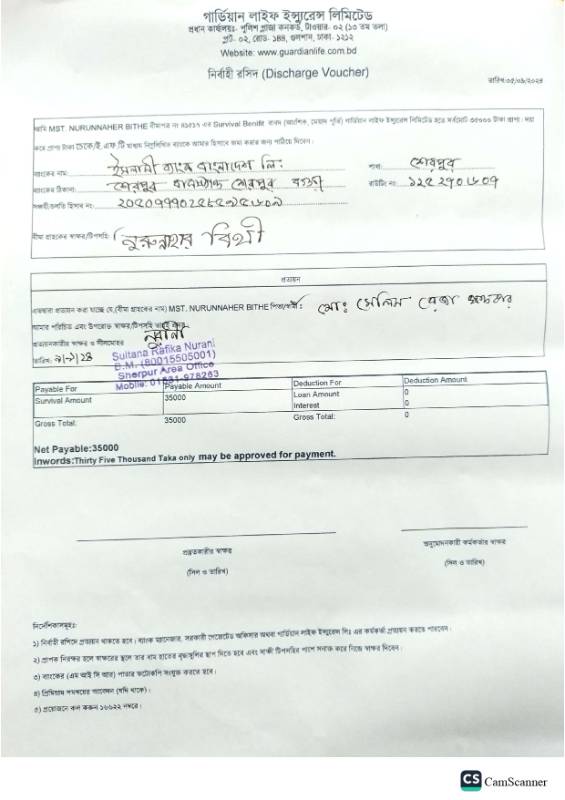 গার্ডিয়ান লাইফ ইন্স্যুরেন্স লিমিটেড
প্রধান কার্যালয়ঃ- পুলিশ প্লাজা কনকর্ড, টাওয়ার- ০২ (১৩ তম তলা)
প্লট- ০২, রোড- ১৪৪, গুলশান, ঢাকা- ১২১২
Website: www.guardianlife.com.bd
নির্বাহী রসিদ (Discharge Voucher)
আমি MST. NURUNNAHER BITHE বীমাপত্র নং এর Survival Benifit বাবদ (আংশিক, মেয়াদ পূর্তি) গার্ডিয়ান লাইফ ইন্স্যুরেন্স লিমিটেড হতে সর্বমোট ৩৫০০০ টাকা প্রাপ্য। দয়া
করে প্রাপ্য টাকা চেকে/ই এফ টি মাধ্যমে নিম্নলিখিত ব্যাংকে আমার হিসাবে জমা করার জন্য পাঠিয়ে দিবেন।
ব্যাংকের নাম: ইসলামী ব্যাংক বাংলাদেশ লি: শাখা: শেরপুর
ব্যাংকের ঠিকানা: শেরপুর বাসস্ট্যান্ড শেরপুর বগুড়া রাউটিং নং:
সঞ্চয়ী/চলতি হিসাব নং:
বীমা গ্রাহকের স্বাক্ষর/টিপসহি: নুরুন্নাহার বিথী
প্রত্যয়ন
এতদ্বারা প্রত্যয়ন করা যাচ্ছে যে,(বীমা গ্রাহকের নাম) MST. NURUNNAHER BITHE পিতা/স্বামী: মো: সেলিম রেজা
আমার পরিচিত এবং উপরোক্ত স্বাক্ষর/টিপসহি তারই বটে।
প্রত্যয়নকারীর স্বাক্ষর ও সীলমোহর
তারিখ:
Sultana Rafika Nurani
B.M. (80015505001)
Sherpur Area Office
Payable For Payable Amount Deduction For Deduction Amount
Survival Amount 35000 Loan Amount 0
Interest 0
Gross Total: 35000 Gross Total: 0
Net Payable:35000
Inwords:Thirty Five Thousand Taka only may be approved for payment.
প্রস্তুতকারীর স্বাক্ষর অনুমোদনকারী কর্মকর্তার স্বাক্ষর
(সিল ও তারিখ) (সিল ও তারিখ)
নির্দেশিকাসমূহঃ
১) নির্বাহী রসিদে প্রত্যয়ন থাকতে হবে। ব্যাংক ম্যানেজার, সরকারী গেজেটেড অফিসার অথবা গার্ডিয়ান লাইফ ইন্স্যুরেন্স লিঃ এর কর্মকর্তা প্রত্যয়ন করতে পারবেন।
২) প্রাপক নিরক্ষর হলে স্বাক্ষরের স্থলে তার বাম হাতের বৃদ্ধাঙ্গুলির ছাপ দিতে হবে এবং সাক্ষী টিপসহির পাশে সনাক্ত করে নিজে স্বাক্ষর দিবেন।
৩) ব্যাংকের (এম আই সি আর) পাতার ফটোকপি সংযুক্ত করতে হবে।
৪) প্রিমিয়াম সমন্বয়ের আবেদন (যদি থাকে)।
৫) প্রয়োজনে কল করুন ১৬৬২২ নম্বরে।
CS CamScanner